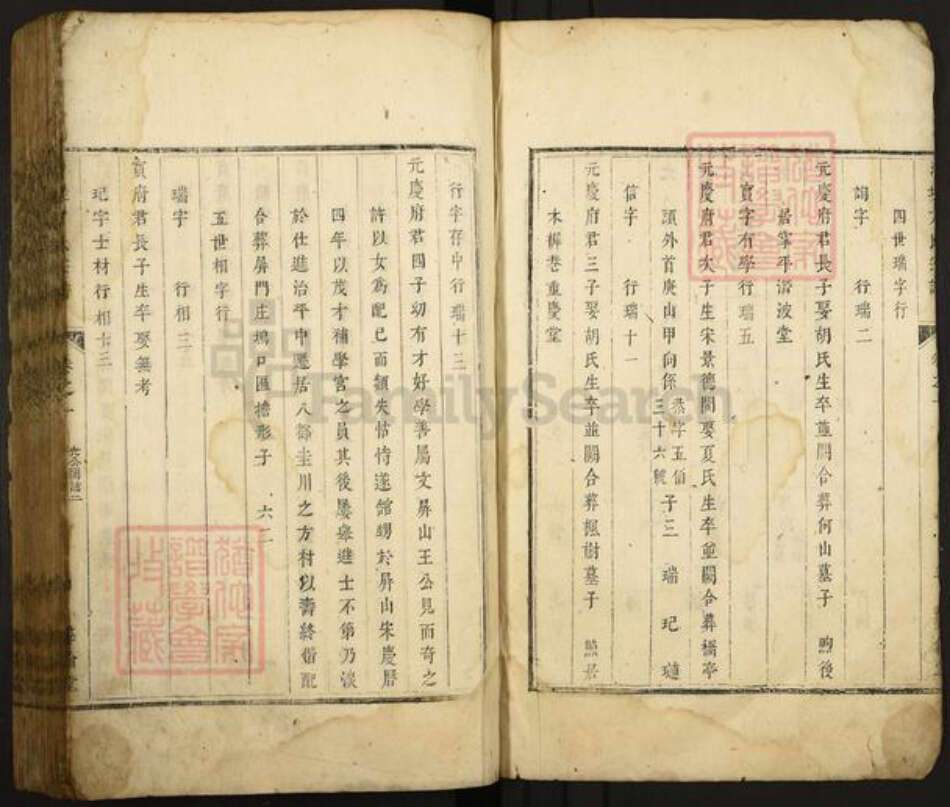 四世瑞字行
詢字　行瑞二
元慶府君長子娶胡氏生卒並闕合葬何山墓子　煦後
居寧平濟波堂
寶字有學行瑞五
元慶府君次子生宋景德間娶夏氏生卒並闕合葬橋亭
頭外首庚山甲向係恭字五伯三十六號子三　瑞　玘　璉
信字　行瑞十一
元慶府君三子娶胡氏生卒並闕合葬楓樹墓子
木樨巷重慶堂
行字存中行瑞十三
元慶府君四子幼有才好學善屬文屏山王公見而奇之
許以女為配已而頻失怙恃遂館甥於屏山宋慶曆
四年以茂才補學官之員其後屢舉進士不第乃淡
於仕進治平中遷居八都圭川之方村以壽終偕配
合葬屏門庄塢口匾擔形子　六二
五世相字行
瑞字　行相三
寶府君長子生卒娶無考
玘字士材行相十三
FamilySearch